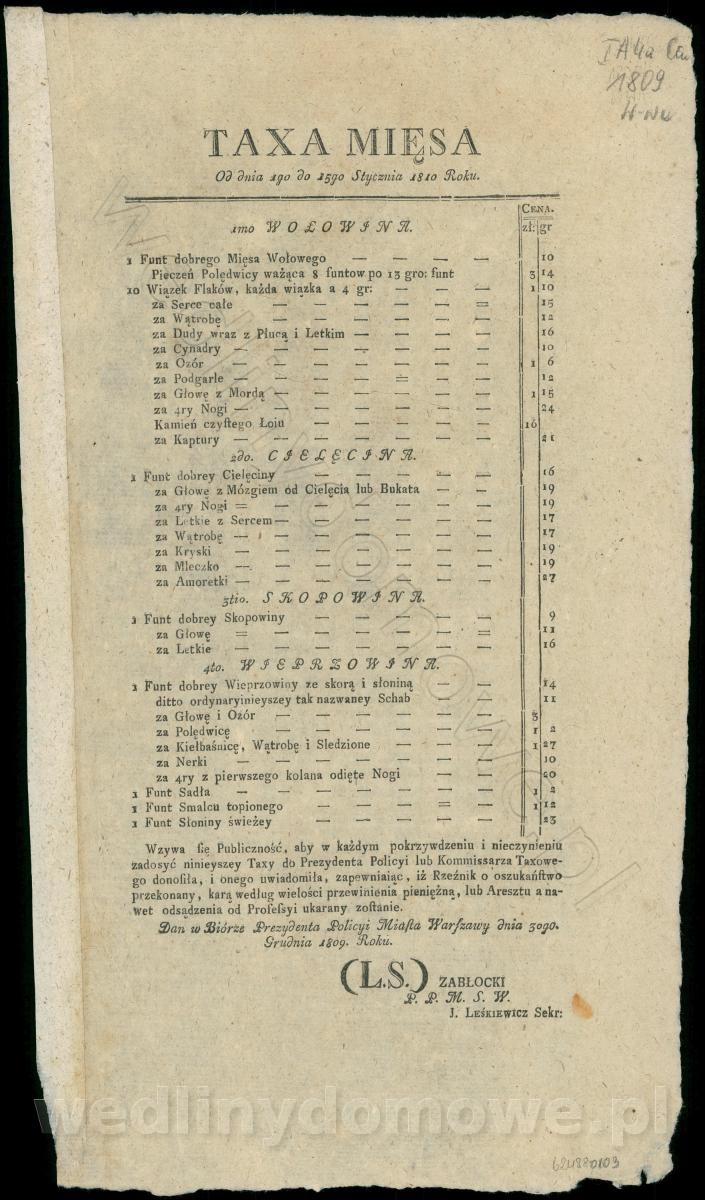 1809
TAXA MIĘSA
Od dnia 1go do 15go Stycznia 1810 Roku.
CENA.
zł: gr
1mo WOŁOWINA.
1 Funt dobrego Mięsa Wołowego — — — — 10
Pieczeń Polędwicy ważąca 8 funtow po 13 gro: funt 3 14
10 Wiązek Flaków, każda wiązka a 4 gr: — — — 1 10
za Serce całe — — — — — — = 15
za Wątrobę — — — — — — — 12
za Dudy wraz z Płucą i Letkim — — — — 16
za Cynadry — — — — — — — 10
za Ozór — — — — — — — 1 6
za Podgarle — — — — = — — 12
za Głowę z Mordą — — — — — — 1 15
za 4ry Nogi — — — — — — — 24
Kamień czyſtego Łoiu — — — — — 16
za Kaptury — — — — — — — 21
2do. CIELĘCINA.
1 Funt dobrey Cielęciny — — — — — 16
za Głowę z Mózgiem od Cielęcia lub Bukata — — 19
za 4ry Nogi = — — — — — — 19
za Letkie z Sercem — — — — — — 17
za Wątrobę — — — — — — — 17
za Kryski — — — — — — — 19
za Mleczko — — — — — — — 19
za Amoretki — — — — — — — 27
3tio. SKOPOWINA.
1 Funt dobrey Skopowiny — — — — — 9
za Głowę = — — — — — = 11
za Letkie — — — — — — — 16
4to. WIEPRZOWINA.
1 Funt dobrey Wieprzowiny ze skorą i słoniną — — 14
ditto ordynaryinieyszey tak nazwaney Schab — — 11
za Głowę i Ozór — — — — — — 3
za Polędwicę — — — — — — — 1 2
za Kiełbaśnicę, Wątrobę i Sledzione — — — 1 27
za Nerki — — — — — — — 10
za 4ry z pierwszego kolana odięte Nogi — — 20
1 Funt Sadła — — — — — — — 1 2
1 Funt Smalcu topionego — — — = — 1 12
1 Funt Słoniny świeżey — — — — — 23
Wzywa ſię Publiczność, aby w każdym pokrzywdzeniu i nieczynieniu
zadosyć ninieyszey Taxy do Prezydenta Policyi lub Kommissarza Taxowe-
go donosiła, i onego uwiadomiła, zapewniaiąc, iż Rzeźnik o oszukańſtwo
przekonany, karą według wielości przewinienia pieniężną, lub Aresztu a na-
wet odsądzenia od Profeſsyi ukarany zoſtanie.
Dan w Biórze Prezydenta Policyi Miaſta Warſzawy dnia 30go.
Grudnia 1809. Roku.
(L.S.) ZABŁOCKI
P. P. M. S. W.
J. LEŚKIEWICZ Sekr:
wedlinydomowe.pl
wedlinydomowe.pl